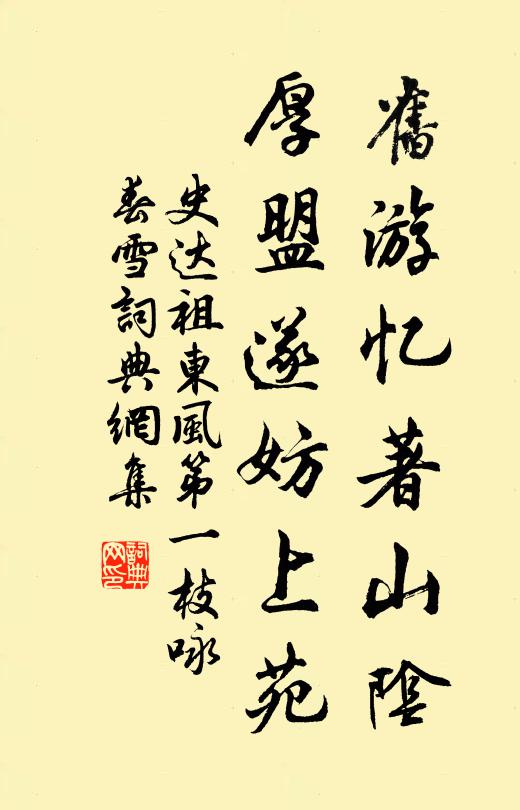 舊游忆著山陰
厚盟遂妨上苑
史达祖東風第一枝咏
春雪詞典網集
詞典网印